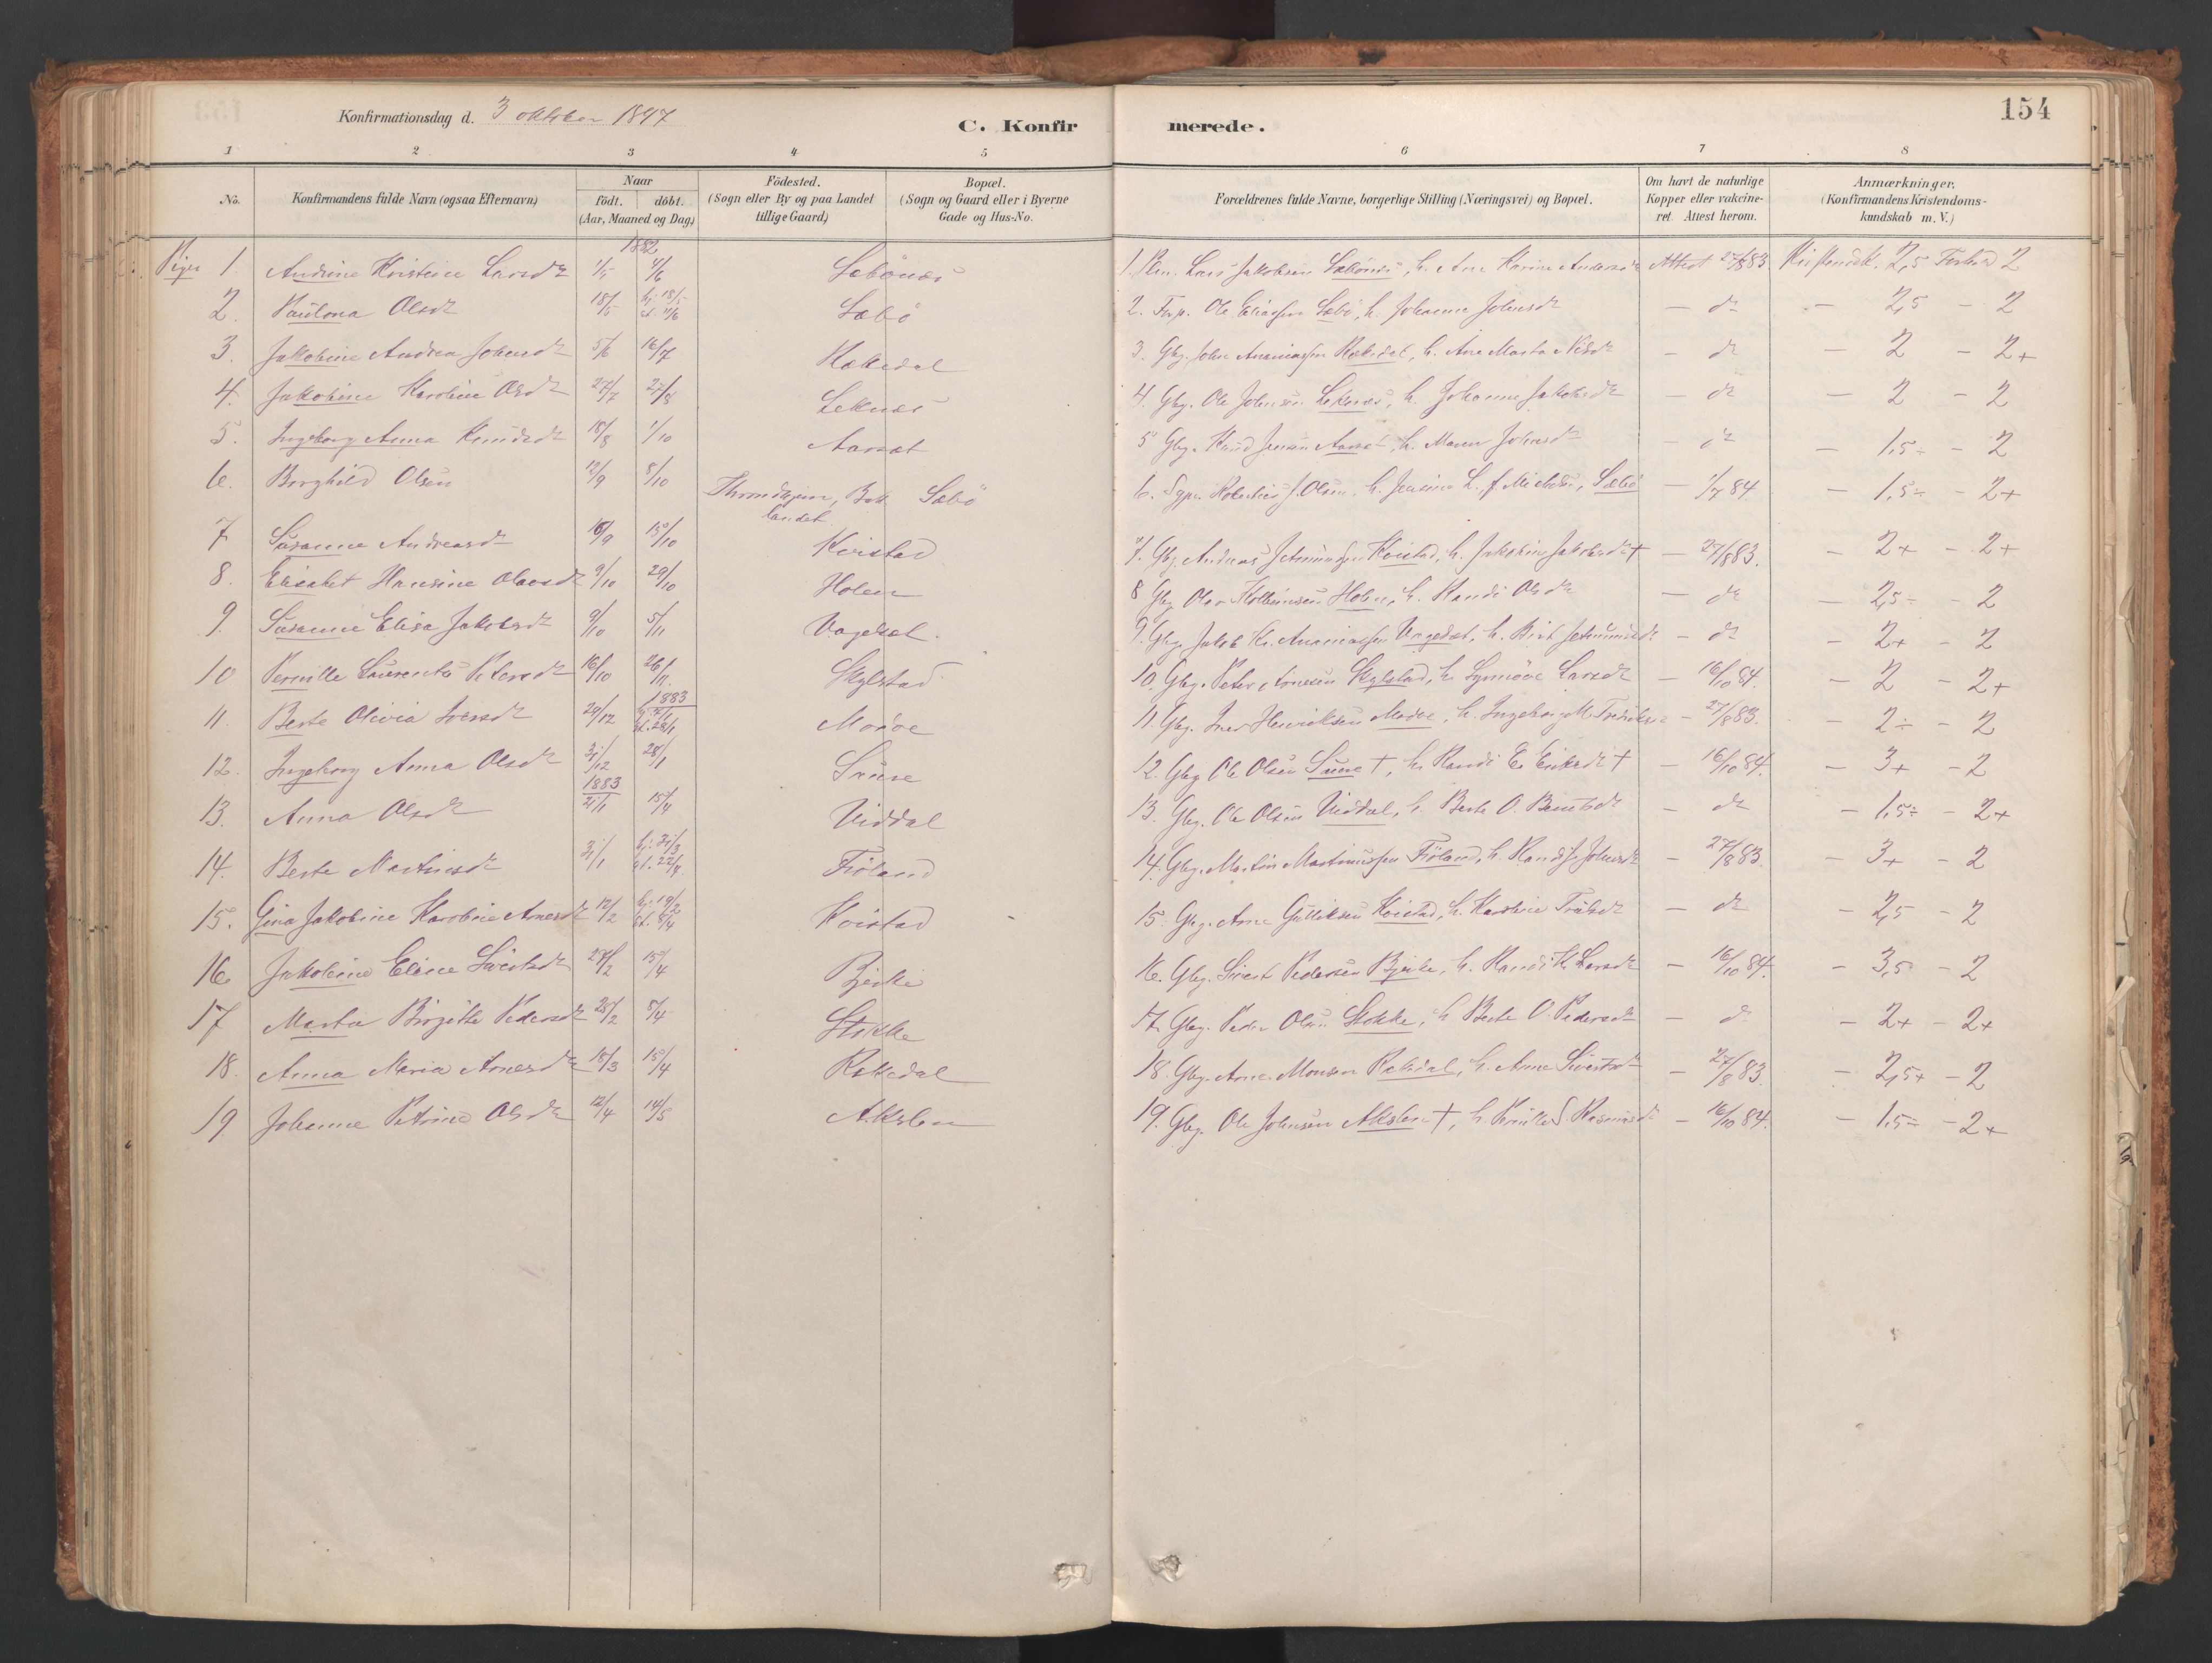 154
Konfirmationsdag d. 3 oktober 1897
C. Konfirmerede.
1 2 3 4 5 6 7 8
No. Konfirmandens fulde Navn (ogsaa Efternavn) Naar födt. döbt. (Aar, Maaned og Dag) Födested. (Sogn eller By og paa Landet tillige Gaard) Bopæl. (Sogn og Gaard eller i Byerne Gade og Hus-No. Forældrenes fulde Navne, borgerlige Stilling (Næringsvei) og Bopæl. Om havt de naturlige Kopper eller vakcineret. Attest herom. Anmærkninger. (Konfirmandens Kristendomskundskab m. V.)
1882
Piger 1. Andrine Kristine Larsdr 1/5 4/6 Sæbönes 1. Lars Jakobsen Sæbönes, h. Ane Karine Andersdr Attest 27/8 83. Kristendk. 2,5 Forhd 2
2. Paulona Olsdr 18/5 hj. 18/5 st. 11/6 Sæbö 2. Ole Eliassen Sæbö, h. Johanne Johnsdr — dr — 2,5 — 2
3. Jakobine Andrea Johnsdr 5/6 16/7 Rekkedal 3. Gbg. John Ananiassen Rekkedal, h. Ane Marta Nilsdr — dr — 2 — 2+
4. Jakobine Karoline Olsdr 27/7 27/8 Leknes 4. Gbg. Ole Johnsen Leknes, h. Johanne Jakobsdr — dr — 2 — 2
5. Ingeborg Anna Knudsdr 18/8 1/10 Aarsæt 5 Gbg. Knud Jensen Aarsæt, h. Maren Johnsdr — dr — 1,5÷ — 2
6. Borghild Olsen 12/9 8/10 Throndhjem, Bak landet Sæbö 6. J. Olsen, h. Jensine L. f. Michelsen, Sæbö — 1/7 84. — 1,5÷ — 2+
7 Susanne Andreasdr 16/9 15/10 Kvistad 7. Gbg. Andreas Jetmundsen Kvistad, h. Jakobine Jakobsdr + — 27/8 83. — 2+ — 2+
8. Elisabet Hansine Olavsdr 9/10 29/10 Holen 8 Gbg. Olav Kolbeinsen Holen, h. Randi Olsdr — dr — 2,5÷ — 2
9. Susanne Elisa Jakobsdr 9/10 5/11 Vagesæt 9. Gbg. Jakob Kr. Ananiassen Vagesæt, h. Birt Jetmundsdr — dr — 2+ — 2
10 Pernille Laurentse Petersdr 16/10 26/11 Skylstad 10. Gbg. Peter Arnesen Skylstad, h. Synnöve Larsdr — 16/10 84. — 2 — 2+
1883
11. Berte Olivia Iversdr 29/12 st. 28/1 Moöve 11 Gbg. Iver Henriksen Moöve, h. Ingeborg M. — 27/8 83. — 2÷ — 2
12. Ingeborg Anna Olsdr 31/12 28/1 Sunne 12. Gbg. Ole Olsen Sunne +, h. Randi E. Eriksdr + — 16/10 84. — 3+ — 2
1883
13. Anna Olsdr 21/1 15/4 Viddal 13. Gbg. Ole Olsen Viddal, h. Berte O. Bentsdr — dr — 1,5÷ — 2+
14. Berte Martinsdr 31/1 hj. 31/3 st. 22/4 Fröland 14. Gbg. Martin Martinussen Fröland, h. Randi J. Johnsdr — 27/8 83. — 3+ — 2
15. Gina Jakobine Karoline Arnesdr 12/2 hj. 19/2 st. 8/4 Kvistad 15. Gbg. Arne Gulliksen Kvistad, h. Karoline — dr — 2,5 — 2
16. Jakobine Eline Sivertsdr 27/2 15/4 Bjerke 16. Gbg. Sivert Pedersen Bjerke, h. Randi K. Larsdr — 16/10 84. — 3,5 — 2
17 Marta Birgitte Pedersdr 28/2 5/4 Stokke 17. Gbg. Peder Olsen Stokke, h. Berte O. Pedersdr — d. — 2+ — 2+
18. Anna Maria Arnesdr 18/3 15/4 Rekkedal 18. Gbg. Arne Monsen Rekkedal, h. Anne Sivertsdr — 27/8 83. — 2,5+ — 2
19 Johanne Petrine Olsdr 12/4 14/5 Akslen 19. Gbg. Ole Johnsen Akslen +, h. Pernille S. Rasmusdr — 16/10 84. — 1,5÷ — 2+